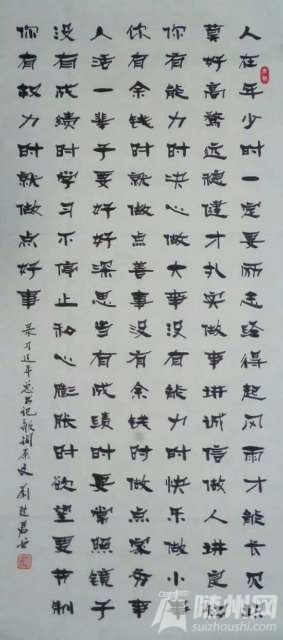 人在年少时一定要励志经得起风雨才能长见识
莫好高骛远稳健才扎实做事讲诚信做人讲良知
你有能力时决心做大事没有能力时快乐做小事
你有余钱时就做点善事没有余钱时做点家务事
人活一辈子要好好深思当有成绩时要常照镜子
没有成绩时学习不停止私心膨胀时欲望要节制
你有权力时就做点好事
录习近平总书记
随州网
suizhoushi.com